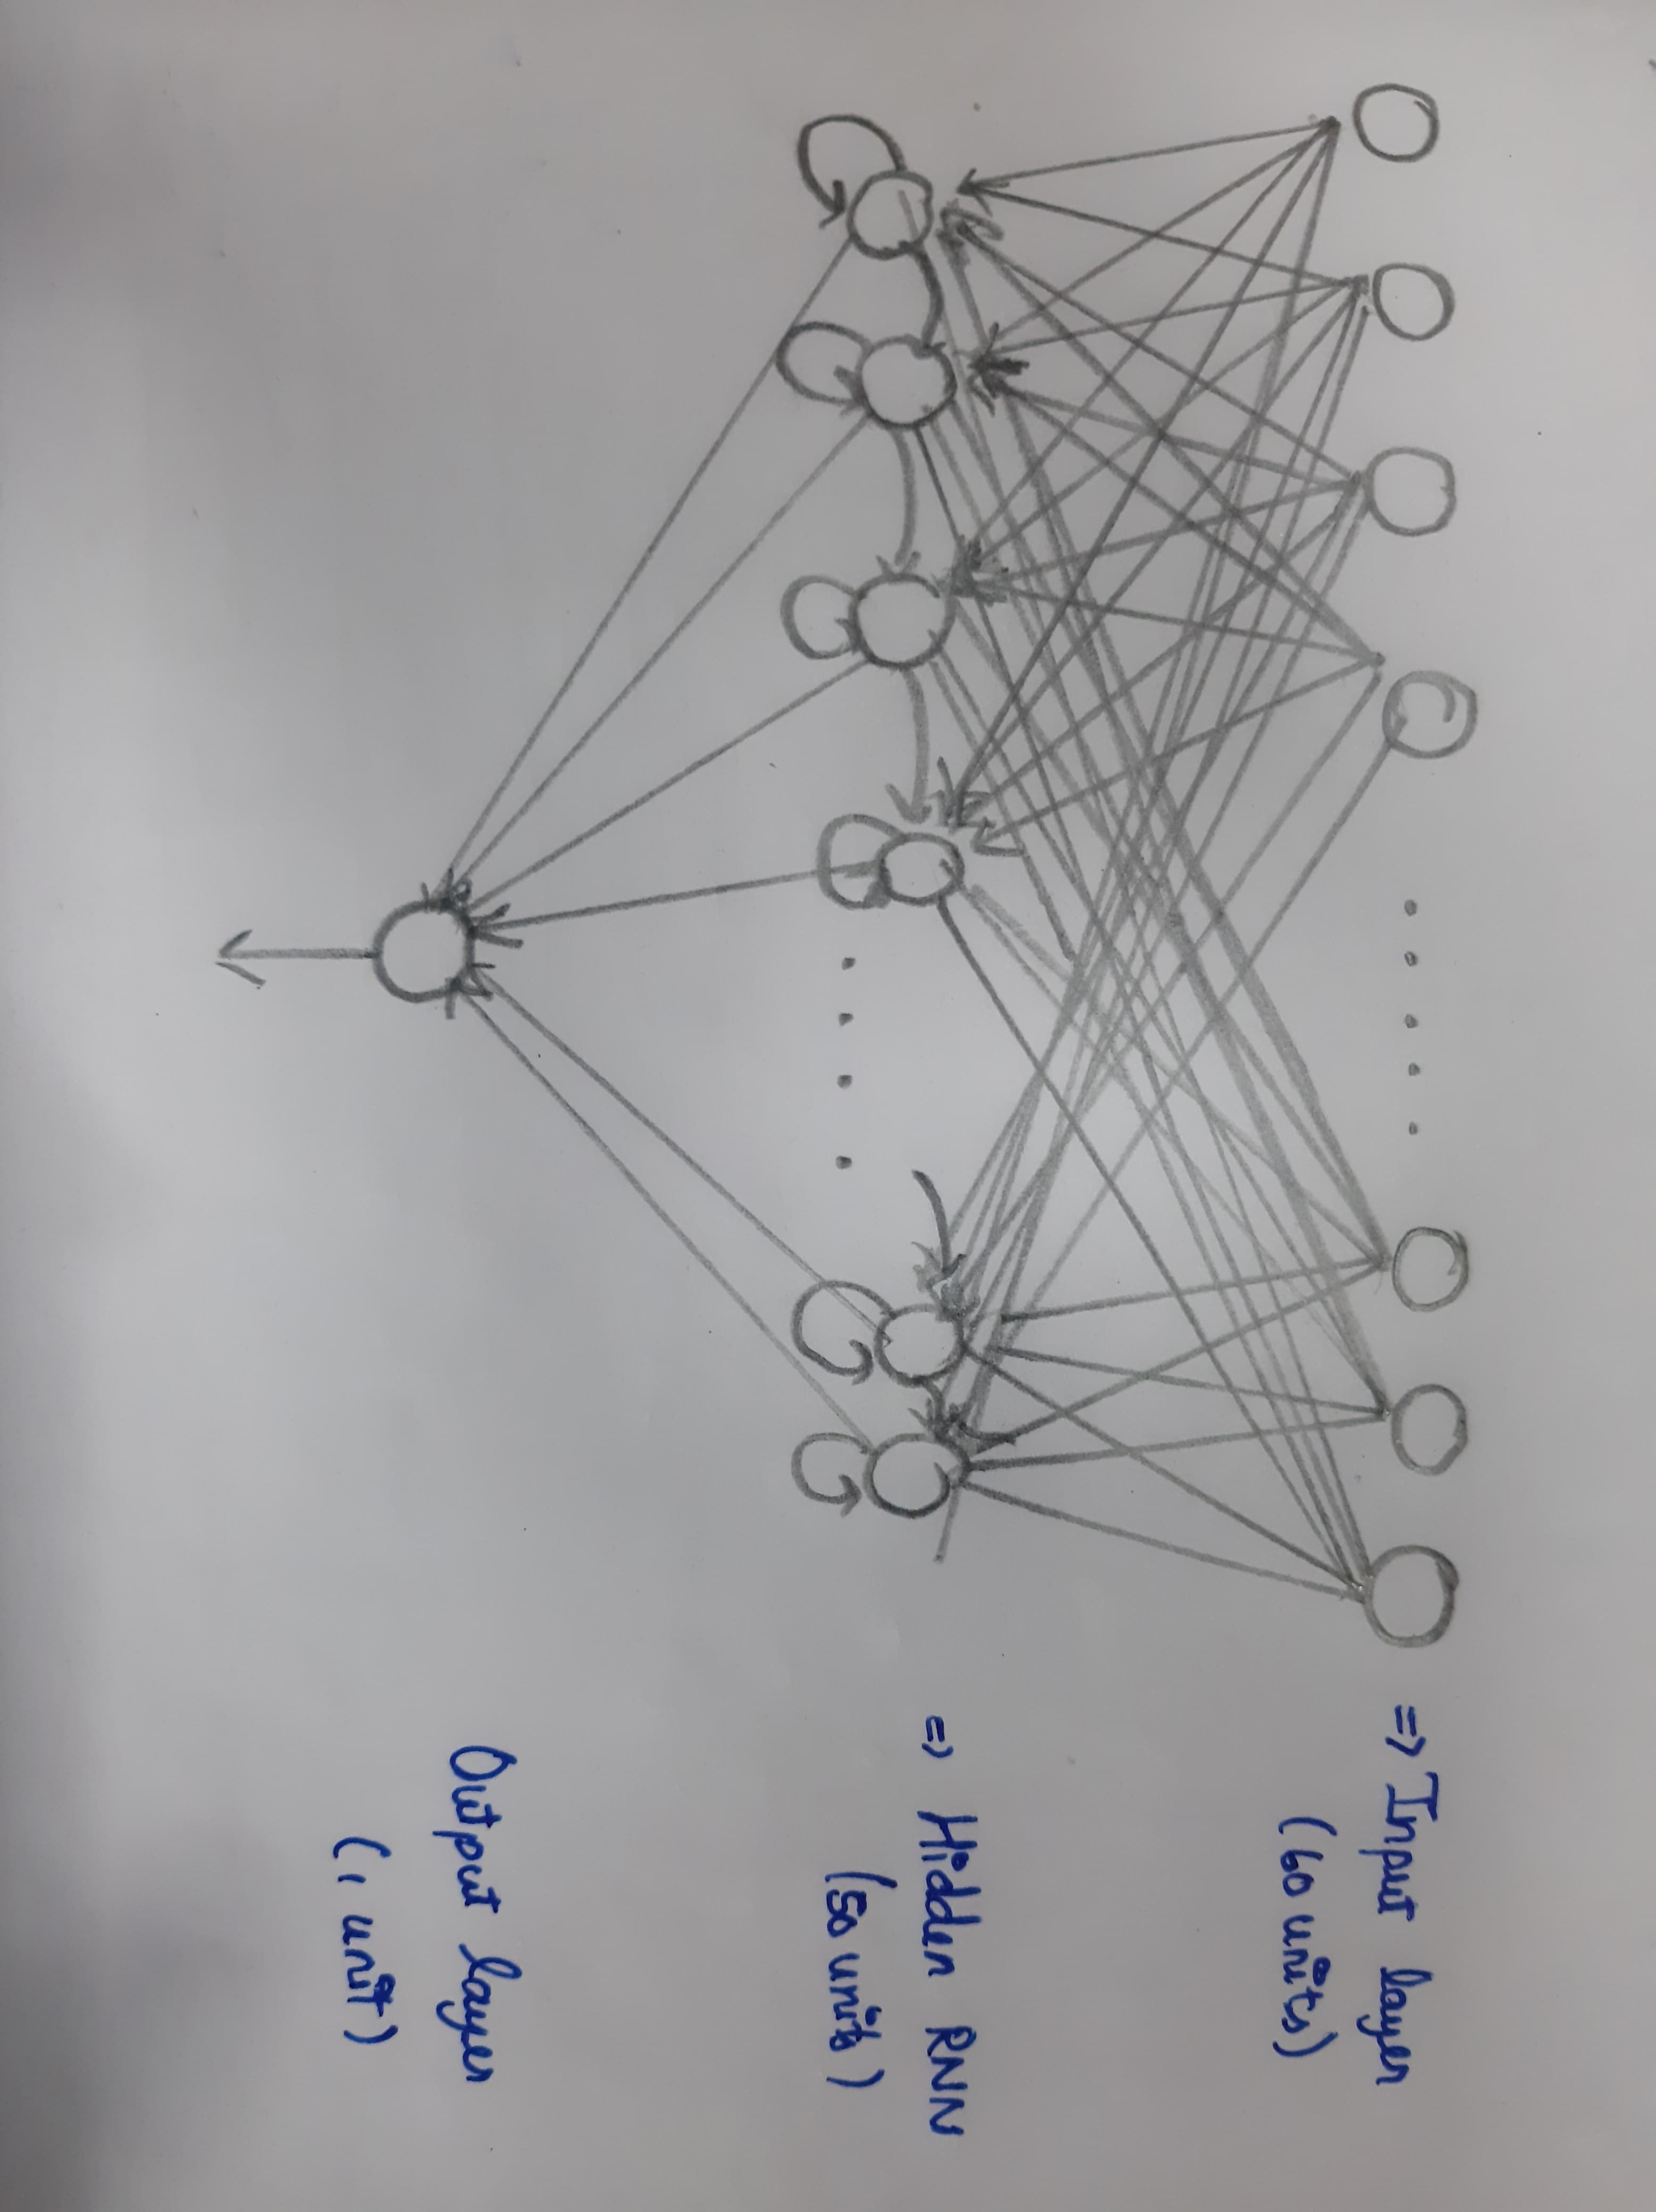 => Input layer
(60 units)
=> Hidden RNN
(50 units)
Output layer
(1 unit)